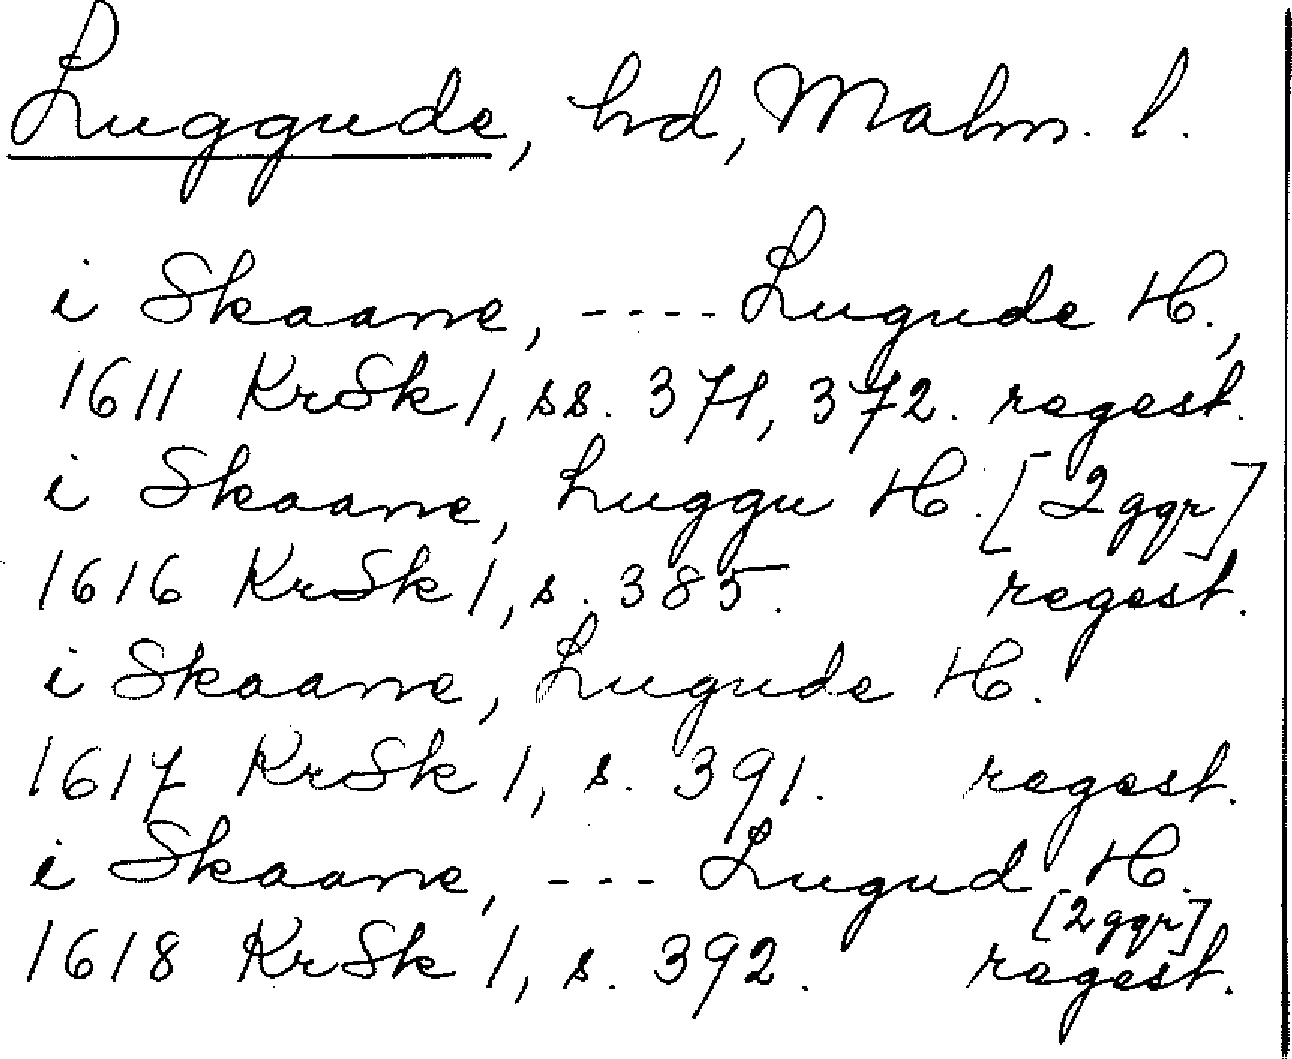 Luggude, hd, Malm. l.
i Skaane, ---- Lugude H.,
1611 KrSk 1, ss. 371, 372. regest.
i Skaane, Luggu H. [2 ggr]
1616 KrSk 1, s. 385. regest.
i Skaane, Lugude H.
1617 KrSk 1, s. 391. regest.
i Skaane, --- Lugud H.
[2 ggr]
1618 KrSk 1, s. 392. regest.